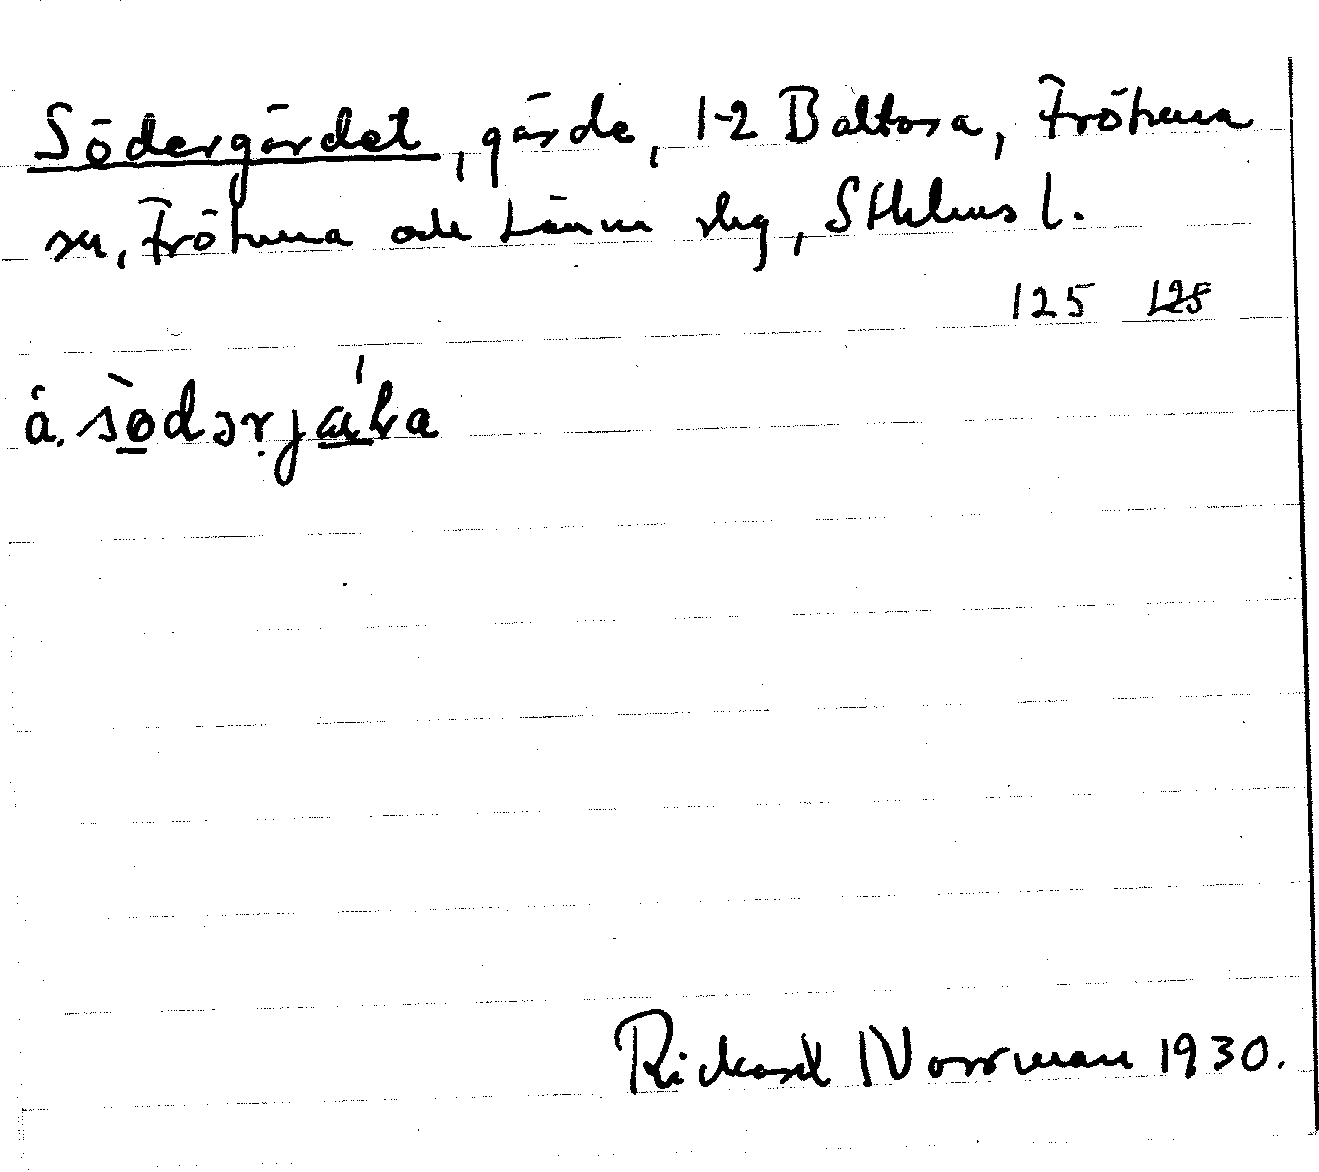 Södergärdet, gärde, 1-2 Baltora, Frötuna
sn, Frötuna och Länna slg, Sthlms l.
125 125
å. sö̀dərjǽka
Rickard Norrman 1930.